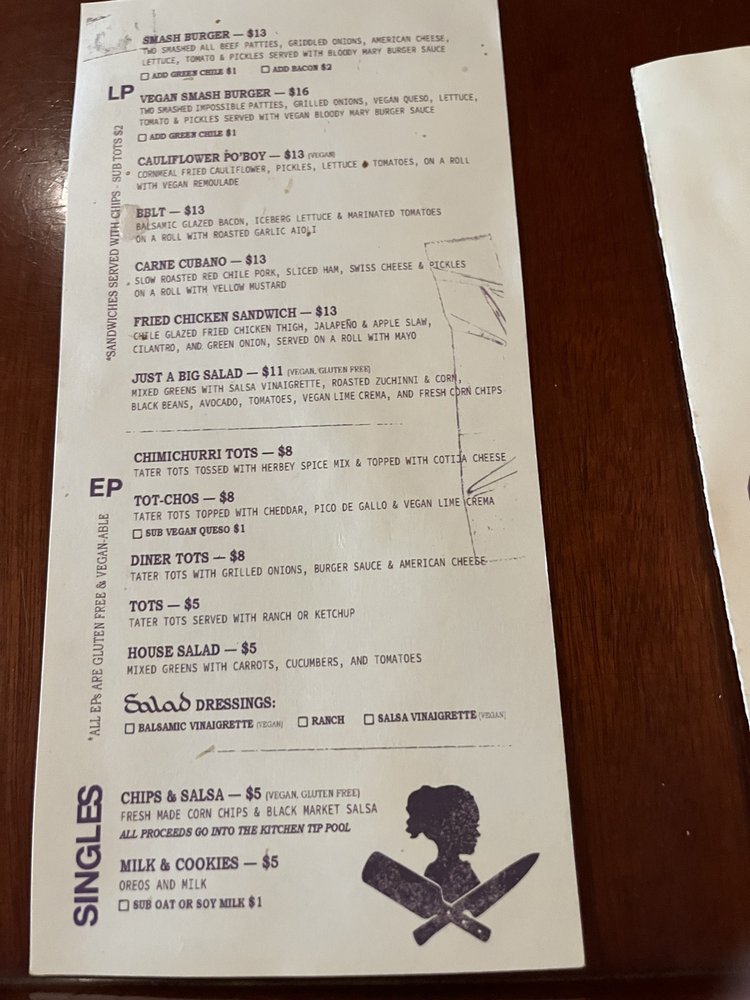 SMASH BURGER — $13
TWO SMASHED ALL BEEF PATTIES, GRIDDLED ONIONS, AMERICAN CHEESE,
LETTUCE, TOMATO & PICKLES SERVED WITH BLOODY MARY BURGER SAUCE
☐ ADD GREEN CHILE $1 ☐ ADD BACON $2
LP
VEGAN SMASH BURGER — $16
TWO SMASHED IMPOSSIBLE PATTIES, GRILLED ONIONS, VEGAN QUESO, LETTUCE,
TOMATO & PICKLES SERVED WITH VEGAN BLOODY MARY BURGER SAUCE
☐ ADD GREEN CHILE $1
*SANDWICHES SERVED WITH CHIPS - SUB TOTS $2
CAULIFLOWER PO'BOY — $13 (VEGAN)
CORNMEAL FRIED CAULIFLOWER, PICKLES, LETTUCE TOMATOES, ON A ROLL
WITH VEGAN REMOULADE
BBLT — $13
BALSAMIC GLAZED BACON, ICEBERG LETTUCE & MARINATED TOMATOES
ON A ROLL WITH ROASTED GARLIC AIOLI
CARNE CUBANO — $13
SLOW ROASTED RED CHILE PORK, SLICED HAM, SWISS CHEESE & PICKLES
ON A ROLL WITH YELLOW MUSTARD
FRIED CHICKEN SANDWICH — $13
CHILE GLAZED FRIED CHICKEN THIGH, JALAPEÑO & APPLE SLAW,
CILANTRO, AND GREEN ONION, SERVED ON A ROLL WITH MAYO
JUST A BIG SALAD — $11 (VEGAN, GLUTEN FREE)
MIXED GREENS WITH SALSA VINAIGRETTE, ROASTED ZUCHINNI & CORN,
BLACK BEANS, AVOCADO, TOMATOES, VEGAN LIME CREMA, AND FRESH CORN CHIPS
CHIMICHURRI TOTS — $8
TATER TOTS TOSSED WITH HERBEY SPICE MIX & TOPPED WITH COTIJA CHEESE
EP
*ALL EPs ARE GLUTEN FREE & VEGAN-ABLE
TOT-CHOS — $8
TATER TOTS TOPPED WITH CHEDDAR, PICO DE GALLO & VEGAN LIME CREMA
☐ SUB VEGAN QUESO $1
DINER TOTS — $8
TATER TOTS WITH GRILLED ONIONS, BURGER SAUCE & AMERICAN CHEESE
TOTS — $5
TATER TOTS SERVED WITH RANCH OR KETCHUP
HOUSE SALAD — $5
MIXED GREENS WITH CARROTS, CUCUMBERS, AND TOMATOES
Salad DRESSINGS:
☐ BALSAMIC VINAIGRETTE (VEGAN) ☐ RANCH ☐ SALSA VINAIGRETTE (VEGAN)
SINGLES
CHIPS & SALSA — $5 (VEGAN, GLUTEN FREE)
FRESH MADE CORN CHIPS & BLACK MARKET SALSA
ALL PROCEEDS GO INTO THE KITCHEN TIP POOL
MILK & COOKIES — $5
OREOS AND MILK
☐ SUB OAT OR SOY MILK $1